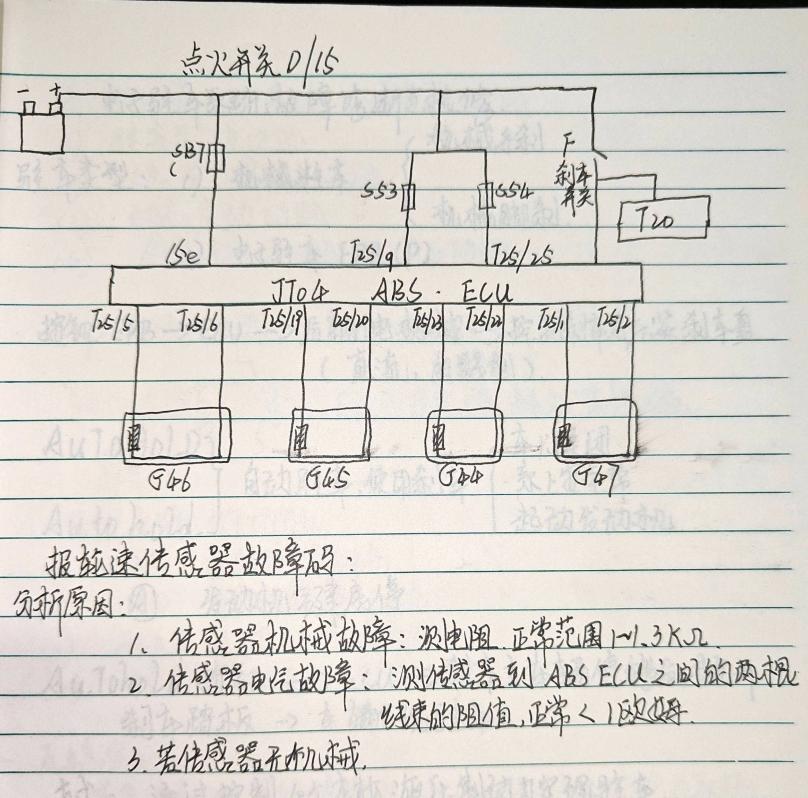 点火开关 D/15
- +
SB7
SS3
SS4
F
刹车
开关
T20
15e
T25/9
T25/25
J104 ABS · ECU
T25/5 T25/6 T25/19 T25/20 T25/23 T25/22 T25/1 T25/2
G46 G45 G44 G47
报轮速传感器故障码:
分析原因:
1、传感器机械故障: 测电阻 正常范围1~1.3KΩ
2、传感器电气故障: 测传感器到ABS ECU之间的两根
线束的阻值,正常<1欧姆.
3、若传感器无机械,